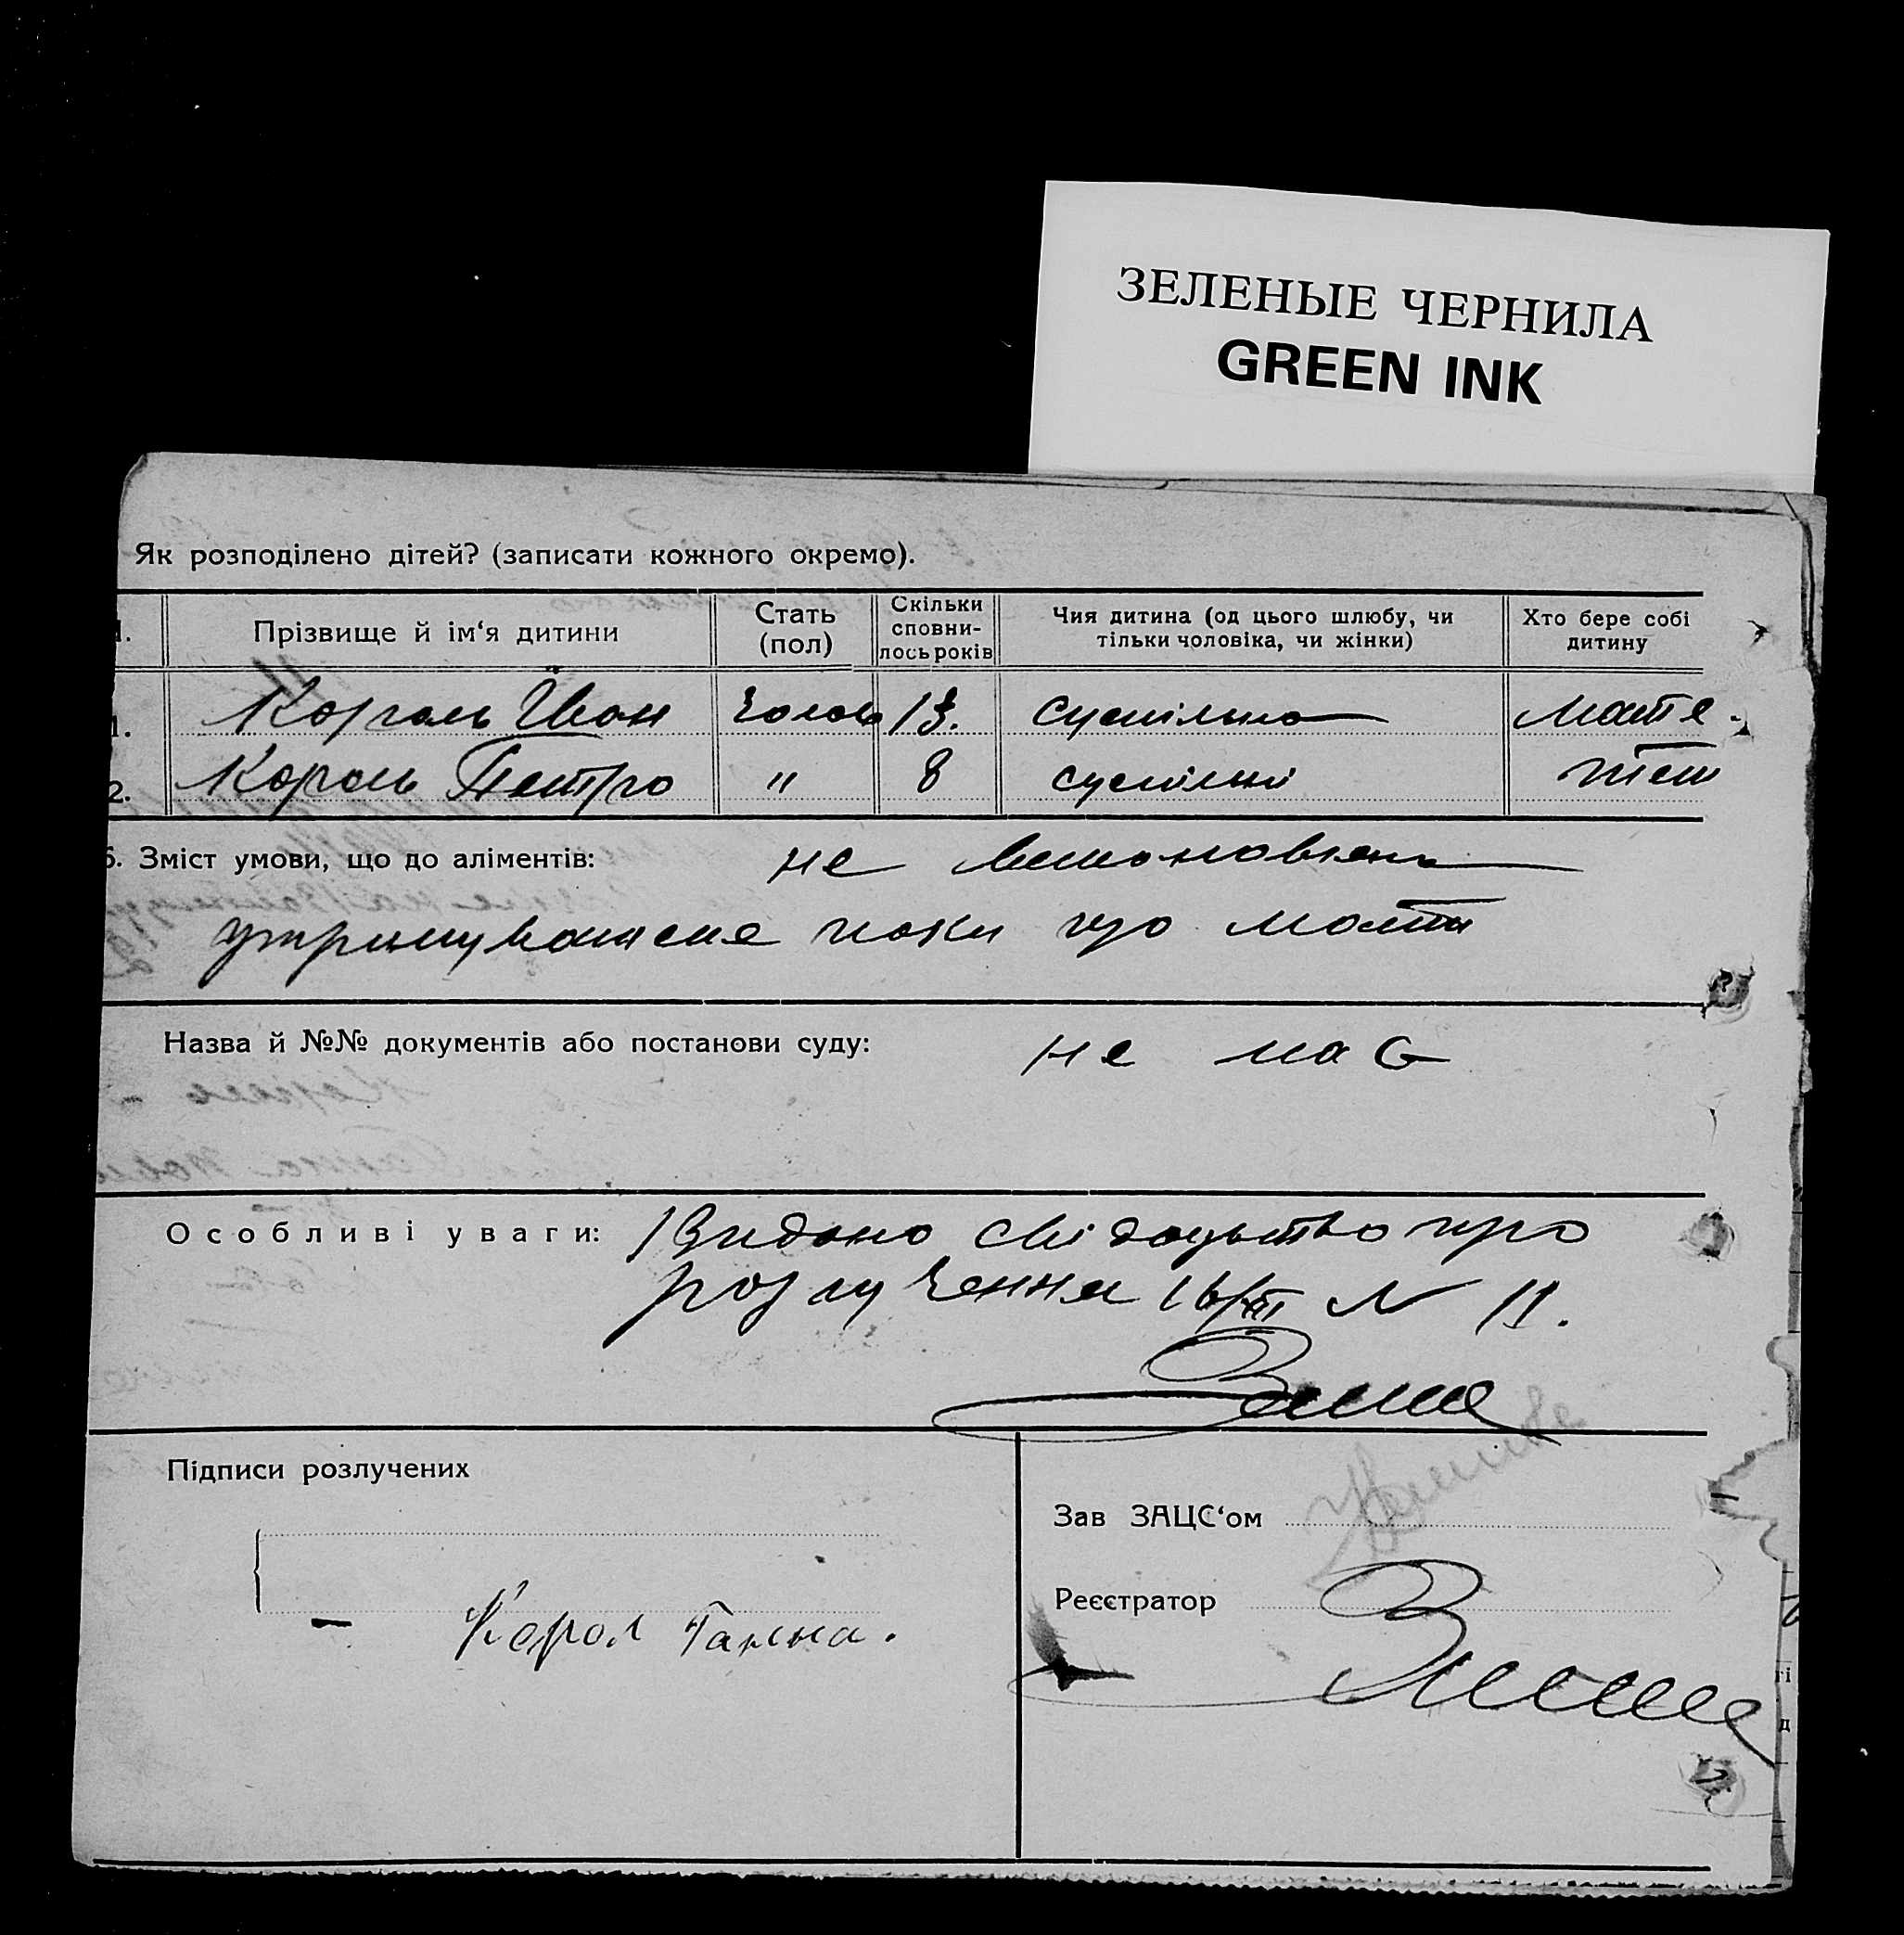 ЗЕЛЕНЫЕ ЧЕРНИЛА
GREEN INK
Як розподілено дітей? (записати кожного окремо).
Прізвище й ім‘я дитини
Стать (пол)
Скільки сповни- лось років
Чия дитина (од цього шлюбу, чи тільки чоловіка, чи жінки)
Хто бере собі дитину
1. Король Йван чолов 13. суспільно
2. Король Петро " 8 суспільні теж
6. Зміст умови, що до аліментів: не
поки що мати
Назва й №№ документів або постанови суду: не має
Особливі уваги: Видано свідоцьтво про
розлучення 16/XII N 11.
Підписи розлучених
Зав ЗАЦС‘ом
Реєстратор
— Карол Ганна.